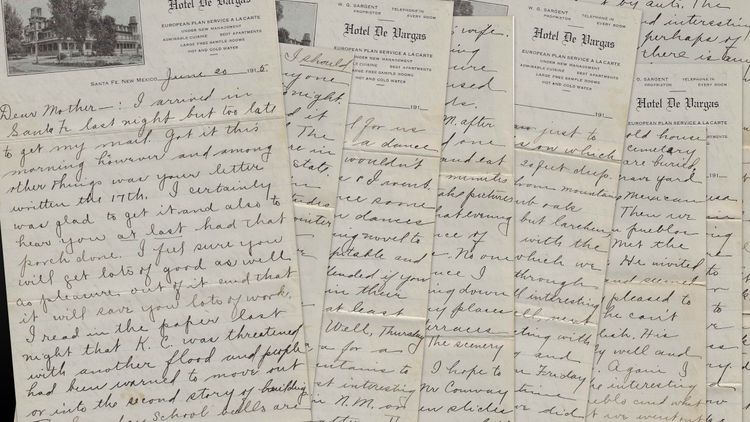 Hotel De Vargas
EUROPEAN PLAN SERVICE A LA CARTE
UNDER NEW MANAGEMENT
ADMIRABLE CUISINE BEST APARTMENTS
LARGE FREE SAMPLE ROOMS
HOT AND COLD WATER
SANTA FE, NEW MEXICO, June 20 1915
Dear Mother—: I arrived in
Santa Fe last night but too late
to get my mail. Got it this
morning however and among
other things was your letter
written the 17th. I certainly
was glad to get it and also to
hear you at last had that
porch done. I feel sure you
will get lots of good as well
as pleasure out of it and that
it will save you lots of work.
I read in the paper last
night that K.C. was threatened
with another flood and people
had been warned to move out
or into the second story of building
School bells are
I should
yone
night.
d it
The
re in
State.
W. G. SARGENT
PROPRIETOR
TELEPHONE IN
EVERY ROOM
Hotel De Vargas
EUROPEAN PLAN SERVICE A LA CARTE
UNDER NEW MANAGEMENT
CUISINE BEST APARTMENTS
LARGE FREE SAMPLE ROOMS
HOT AND COLD WATER
191
l for us
a dance
wouldn't
& I went.
nce some
n dances
ing novel to
pitable and
tended if you
in their
at least
Well, Thursday
for a
ountains to
st interesting
in N.M. on
The
wife.
ing
ure
used
ds.
M. after
d one
and eat
minutes
pictures
hat evening
nce of
e. No one
nce I
ing down
ny places
terraces
The scenery
I hope to
Mr Conway
W. G. SARGENT
PROPRIETOR
TELEPHONE IN
EVERY ROOM
Hotel De Vargas
EUROPEAN PLAN SERVICE A LA CARTE
UNDER NEW MANAGEMENT
ADMIRABLE CUISINE BEST APARTMENTS
LARGE FREE SAMPLE ROOMS
HOT AND COLD WATER
191
just to
on which
20 feet deep.
from mountain
oaks
but larch
with the
which we
through
interesting
ting with
and
on Friday
time
we did
by auto. The
nd interesting
perhaps of
there is any
W. G. SARGENT
PROPRIETOR
TELEPHONE IN
EVERY ROOM
Hotel De Vargas
EUROPEAN PLAN SERVICE A LA CARTE
UNDER NEW MANAGEMENT
ADMIRABLE CUISINE BEST APARTMENTS
LARGE FREE SAMPLE ROOMS
HOT AND COLD WATER
191
old house
cemetery
are buried
grave yard
Mexican
Then we
pueblo
Met the
He invited
and seemed
pleased to
he can't
lish. His
ly well and
Again I
the interesting
and what
we went out